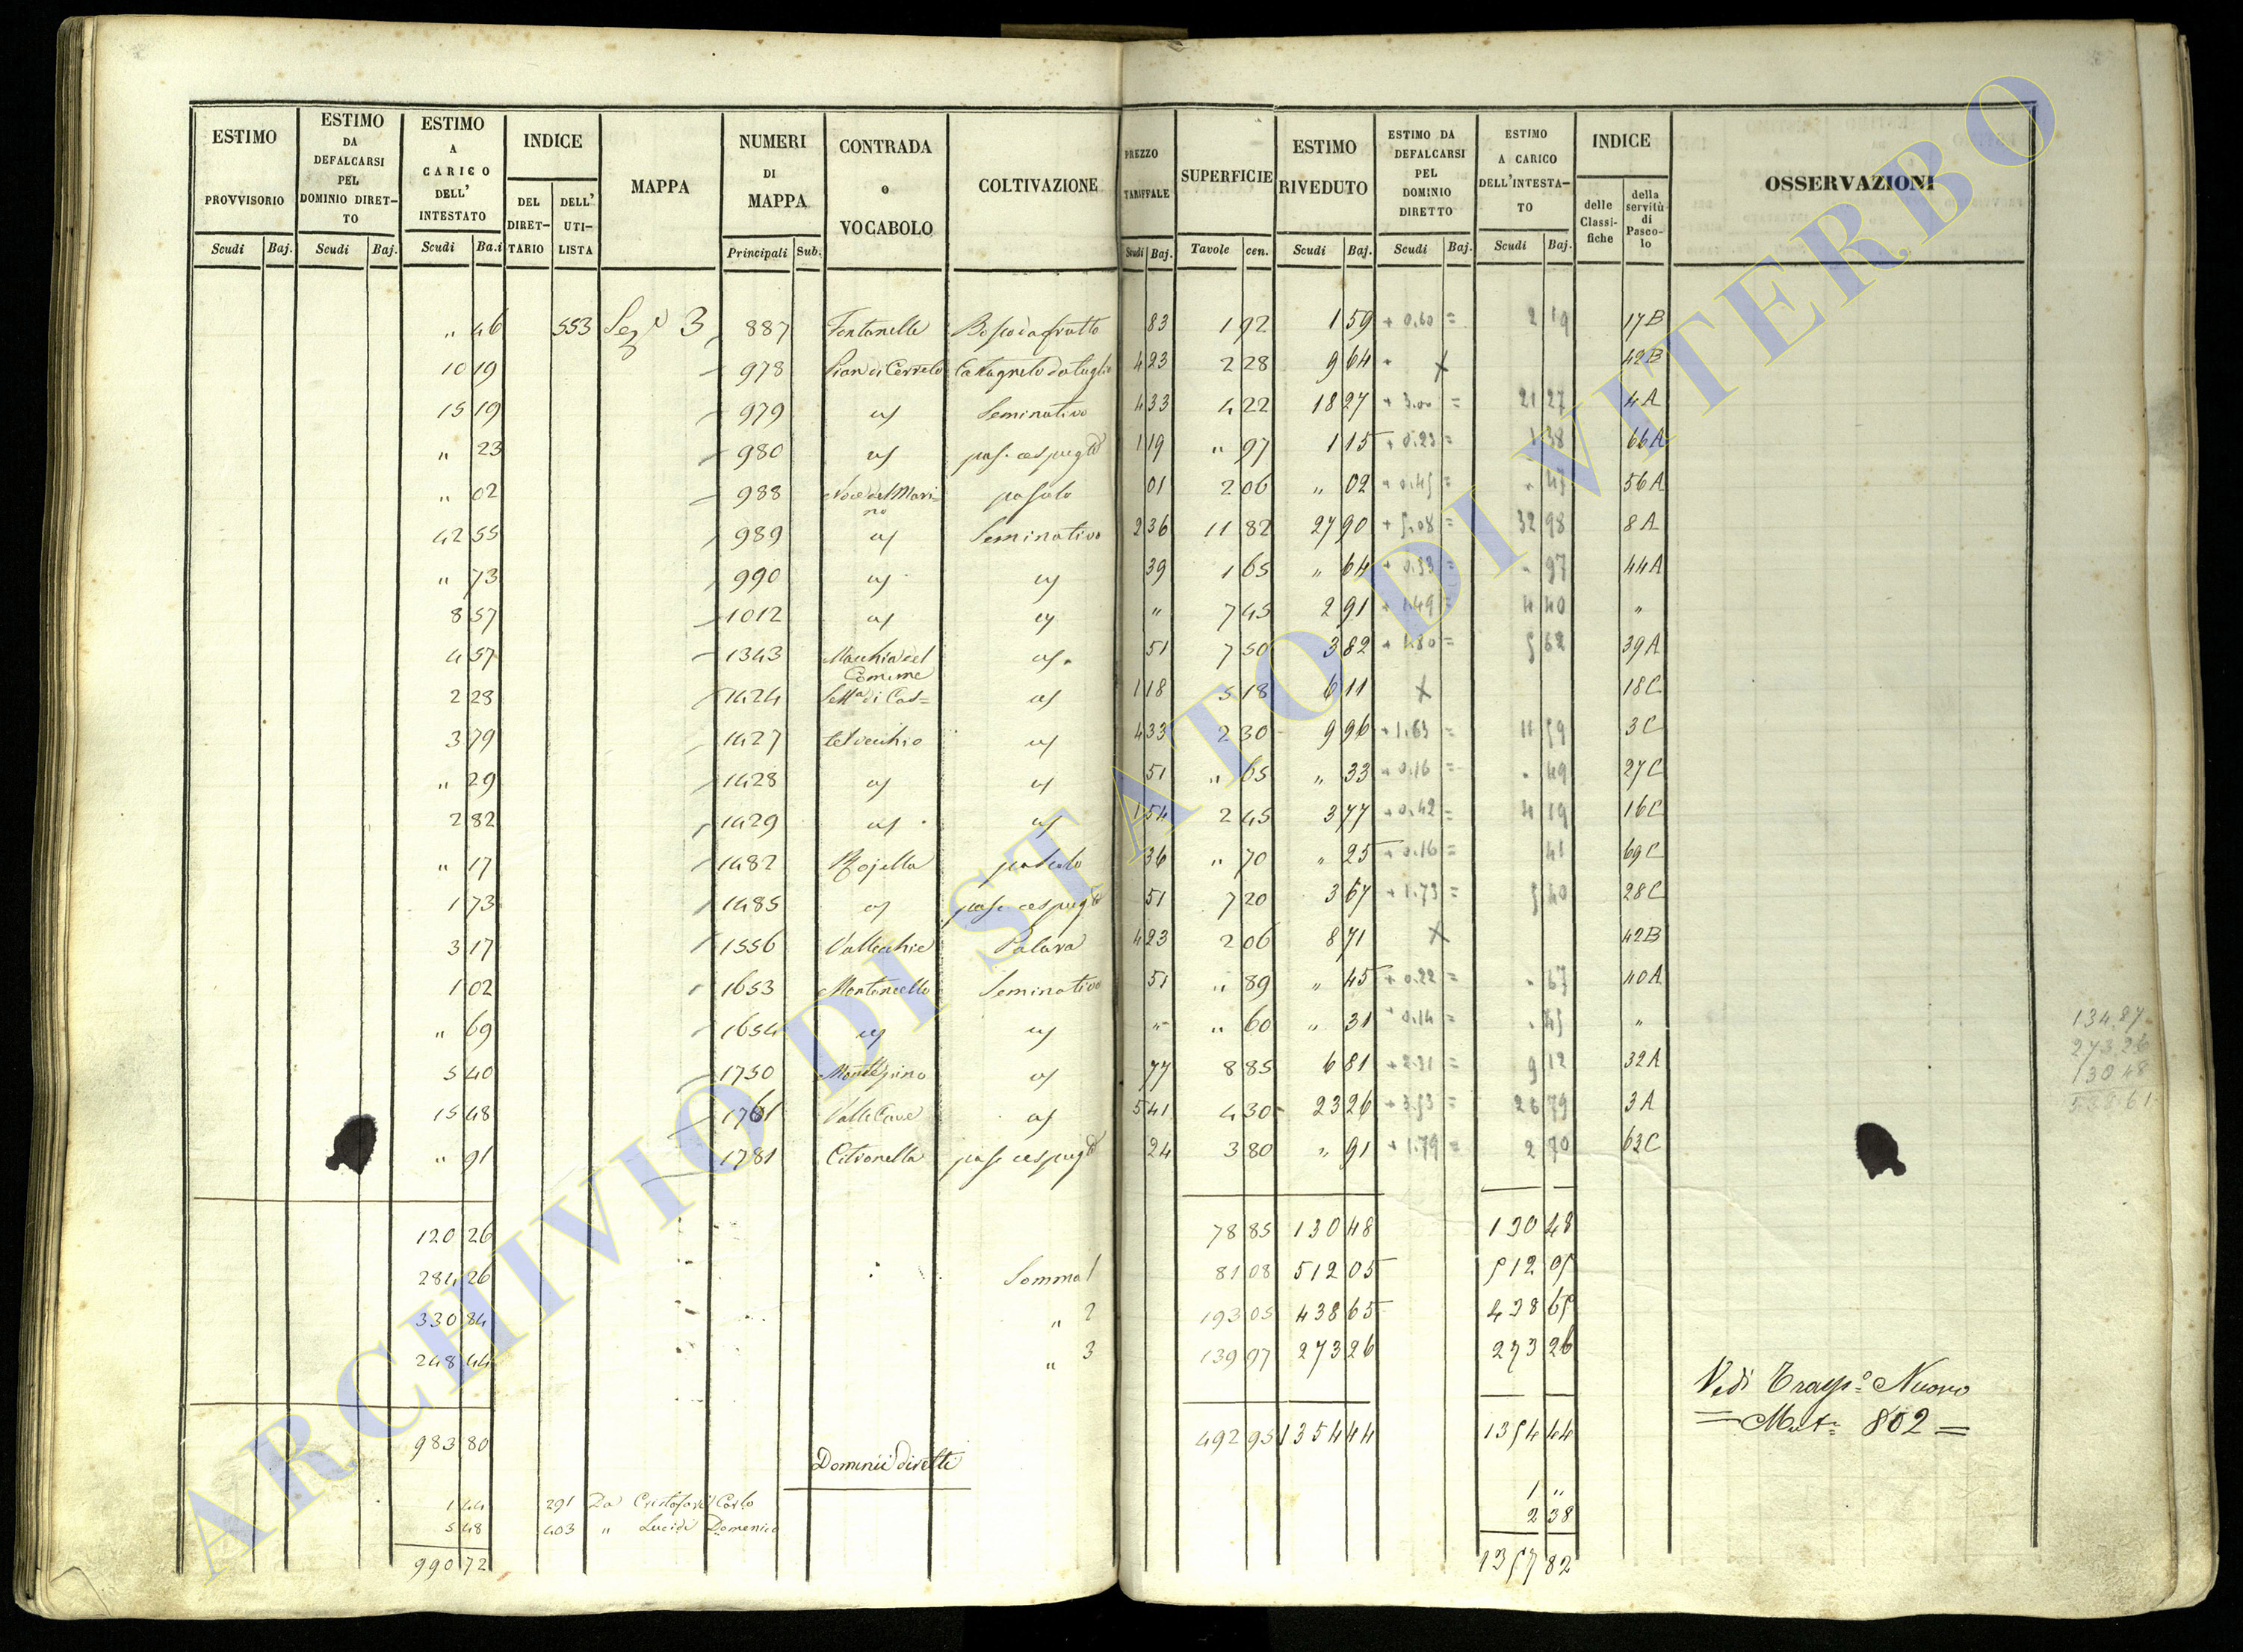 ESTIMO PROVVISORIO Scudi Baj.
ESTIMO DA DEFALCARSI PEL DOMINIO DIRETTO Scudi Baj.
ESTIMO A CARICO DELL' INTESTATO Scudi Ba.i
INDICE DEL DIRETTARIO DELL' UTILISTA
MAPPA
NUMERI DI MAPPA Principali Sub.
CONTRADA o VOCABOLO
COLTIVAZIONE
PREZZO TARIFFALE Scudi Baj.
SUPERFICIE Tavole cen.
ESTIMO RIVEDUTO Scudi Baj.
ESTIMO DA DEFALCARSI PEL DOMINIO DIRETTO Scudi Baj.
ESTIMO A CARICO DELL'INTESTATO Scudi Baj.
INDICE delle Classifiche della servitù di Pascolo
OSSERVAZIONI
" 46 553 Sez.e 3 887 Fontanelle Bosco da frutto 83 1 92 1 59 + 0.60 = 2 19 17B
10 19 978 Pian di Cerreto Castagneto da taglio 4 23 2 28 9 64 + X 42B
15 19 979 id Seminativo 4 33 4 22 18 27 + 3.00 = 21 27 4A
" 23 980 id pas. cespugto 1 19 " 97 1 15 + 0.23 = 1 38 66A
" 02 988 Noce del Marino pascolo 01 2 06 " 02 + 0.45 = " 47 56A
42 55 989 id Seminativo 2 36 11 82 27 90 + 5.08 = 32 98 8A
" 73 990 id id 39 1 65 " 64 + 0.33 = " 97 44A
8 57 1012 id id " 7 45 2 91 + 1.49 = 4 40 "
4 57 1343 Macchia del Comune id 51 7 50 3 82 + 1.80 = 5 62 39A
2 23 1424 Sett.a di Cas= id 1 18 5 18 6 11 X 18C
3 79 1427 telvecchio id 4 33 2 30 9 96 + 1.63 = 11 59 3C
" 29 1428 id id 51 " 65 " 33 + 0.16 = " 49 27C
2 82 1429 id id 1 54 2 45 3 77 + 0.42 = 4 19 16C
" 17 1482 Rojella pascolo 36 " 70 " 25 + 0.16 = 41 69C
1 73 1485 id pas. cespugto 51 7 20 3 67 + 1.73 = 5 40 28C
3 17 1556 Vallecchie 4 23 2 06 8 71 X 42B
1 02 1653 Montencello Seminativo 51 " 89 " 45 + 0.22 = " 67 40A
" 69 1654 id id " " 60 " 31 + 0.14 = " 45 "
5 40 1750 id 77 8 85 6 81 + 2.31 = 9 12 32A
15 48 1761 Valle Cave id 5 41 4 30 23 26 + 3.53 = 26 79 3A
" 91 1781 Citronella pas. cespugto 24 3 80 " 91 + 1.79 = 2 70 63C
134.87
273.26
130.48
538.61
120 26 78 85 130 48 130 48
284 26 Somma 1 81 08 512 05 512 05
330 84 " 2 193 05 438 65 438 65
248 44 " 3 139 97 273 26 273 26
983 80 492 95 1354 44 1354 44
Vedi Trasp.o Nuovo
= Mat.a 802 =
Dominii diretti
1 44 291 Da Cristofari Carlo 1 "
5 48 403 " Lucidi Domenico 2 38
990 72 1357 82
ARCHIVIO DI STATO DI VITERBO